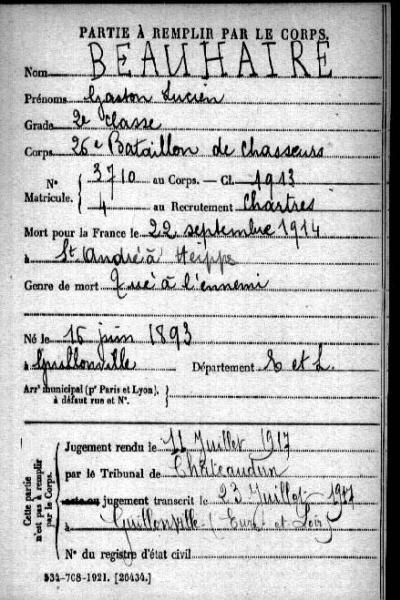 PARTIE À REMPLIR PAR LE CORPS.
Nom BEAUHAIRE
Prénoms Gaston Lucien
Grade 2e classe
Corps 26e Bataillon de Chasseurs
N° Matricule. { 3710 au Corps. — Cl. 1913
4 au Recrutement Chartres
Mort pour la France le 22 septembre 1914
à St André à Heipps
Genre de mort Tué à l'ennemi
Né le 16 juin 1893
à Guillonville Département E et L.
Arr^t municipal (p^r Paris et Lyon), à défaut rue et N°. }
Cette partie n'est pas à remplir par le Corps.
Jugement rendu le 11 Juillet 1917
par le Tribunal de Châteaudun
acte ou jugement transcrit le 23 Juillet 1917
à Guillonville (Eure et Loir)
N° du registre d'état civil
534-708-1921. [26434.]